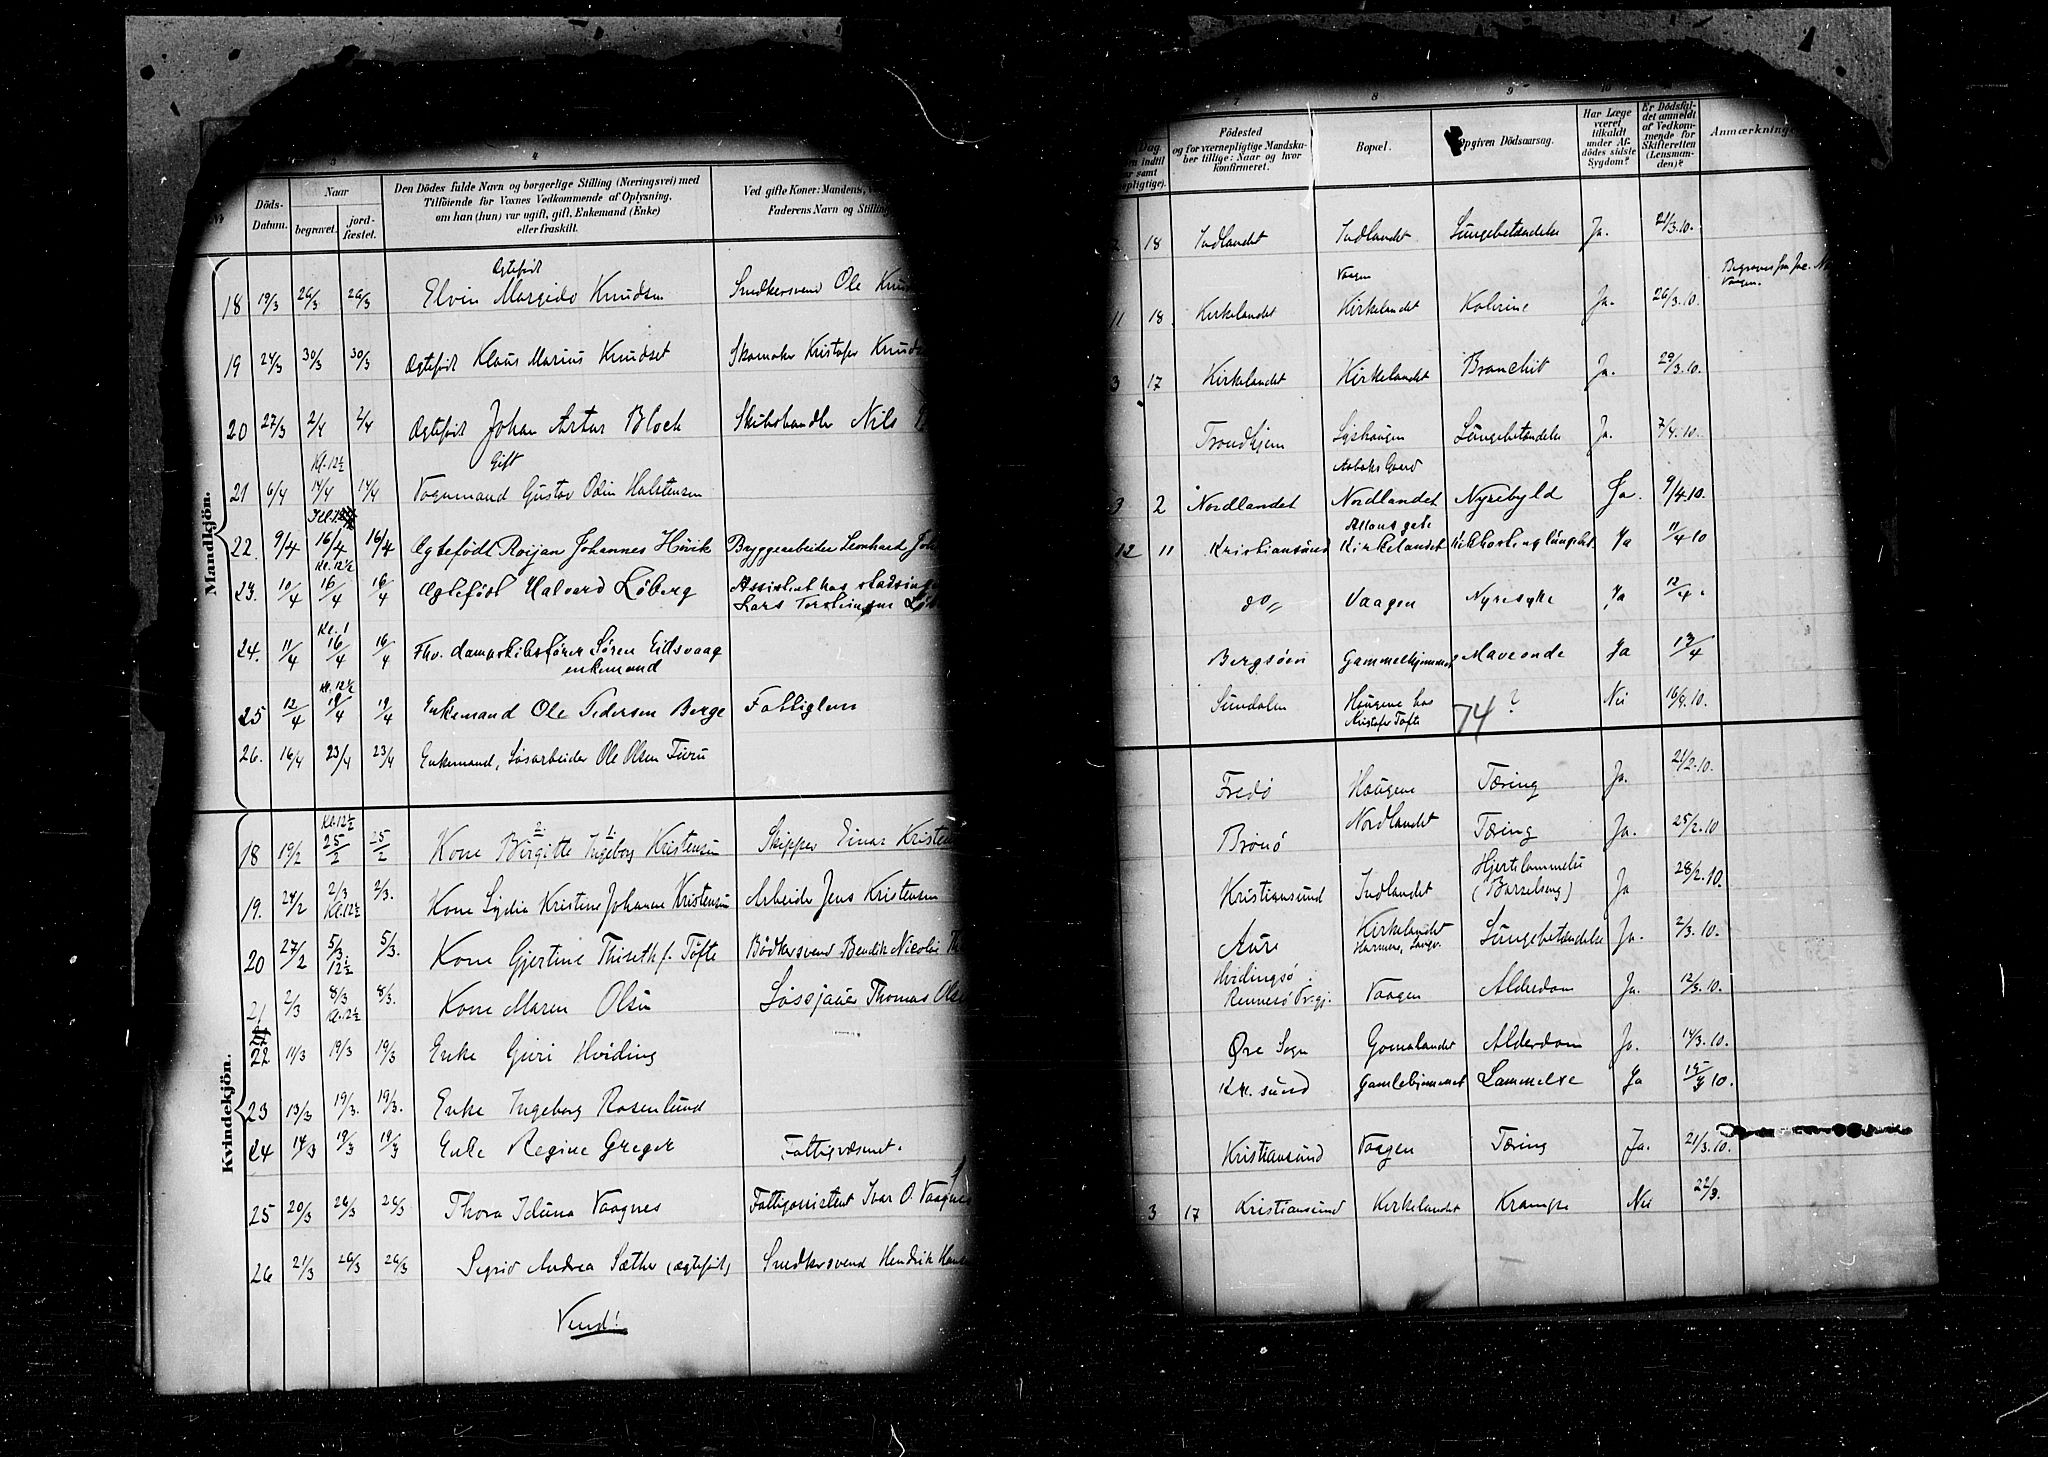 3 4
Nr.
Döds-
Datum.
Naar
begravet.
jord-
fæstet.
Den Dödes fulde Navn og borgerlige Stilling (Næringsvei) med
Tilföiende för Voxnes Vedkommende af Oplysning,
om han (hun) var ugift, gift, Enkemand (Enke)
eller fraskilt.
Ved gifte Koner: Mandens,
Faderens Navn og Stilling
Mandkjön.
Ægtefödt
18 19/3 26/3 26/3 Elvin Margido Knudsen Snedkersvend Ole Knud
19 24/3 30/3 30/3 Ægtefödt Klaus Marius Knudset Skomaker Kristofer Knud
20 27/3 2/4 2/4 Ægtefödt Johan Artur Bloch Skibshandler Nils
Kl. 12½ Gift
21 6/4 14/4 14/4 Vognmand Gustav Odin Halstensen
22. 9/4 16/4 16/4 Ægtefödt Roijan Johannes Hövik Bryggearbeider Leonhard Joh
Kl. 12½
23. 10/4 16/4 16/4 Ægtefödt Halvard Löberg Assistent hos stadsing
Lars Torsteinsen Löb
Kl. 1
24. 11/4 16/4 16/4 Fhv. dampskibsförer Sören Eidsvaag
enkemand
Kl. 12½
25 12/4 19/4 19/4 Enkemand Ole Pedersen Berge Fattiglem
26. 16/4 23/4 23/4 Enkemand, Løsarbeider Ole Olsen Furu
Kvindekjön.
Kl. 12½ 2. 1.
18 19/2 25/2 25/2 Kone Birgitte Ingeborg Kristensen Skipper Einar Kristen
19. 24/2 2/3 2/3. Kone Lydia Kristine Johanne Kristensen Arbeider Jens Kristensen
Kl. 12½
20 27/2 5/3. 5/3. Kone Gjertine Thiseth f. Töfte Bödkersvend Bendik Nicolai Th
12½
21 2/3 8/3 8/3. Kone Maren Olsen Løssjauer Thomas Ols
Kl. 12½
22 11/3 19/3 19/3 Enke Guri Hviding
23 13/3 19/3. 19/3. Enke Ingeborg Rosenlund
24 14/3 19/3 19/3 Enke Regine Greger Fattigvæsenet.
25 20/3 26/3 26/3 Thora Iduna Vaagnes Fattigassistent Ivar O. Vaagnes
26 21/3 26/3 26/3 Sigrid Andrea Sæther (ægtefödt) Snedkersvend Hendrik Han
Vend!
7 8 9 10
Dag.
Födested
og for værnepligtige Mandska-
ber tillige: Naar og hvor
konfirmeret.
Bopæl.
Opgiven Dödsaarsag.
Har Læge
været
tilkaldt
under Af-
dödes sidste
Sygdom?
Er Dödsfal-
det anmeldt
af Vedkom-
mende for
Skifteretten
(Lensman-
den)?
Anmærkninge
18 Indlandet Indlandet Lungebetændelse Ja. 21/3.10.
Vaagen
11 18. Kirkelandet Kirkelandet Kolerine Ja. 26/3.10.
Vaagen.
3 17 Kirkelandet Kirkelandet Bronchit Ja. 29/3.10.
Trondhjem Lungebetændelse Ja. 7/4.10.
3 2 Nordlandet Nordlandet Nyrebyld Ja. 9/4.10.
12 11 Kristiansund Kirkelandet Ja 11/4 10
do Vaagen Nyresyke Ja 12/4.
Bergsöen Mavesonde Ja 13/4
Sundalen Haugene hos 74 ? Nei 16/4.10.
Kristofer Tofte
Fredö Haugene Tæring Ja. 21/2.10.
Brönö Nordlandet Tæring Ja. 25/2.10
Kristiansund Indlandet Hjertelammelse Ja 28/2.10.
(Barselseng)
Aure Kirkelandet Lungebetændelse Ja. 2/3.10.
Hvidingsö
Rennesö Vaagen Alderdom Ja. 12/3.10.
Øre Sogn Gomalandet Alderdom Ja. 14/3.10.
Kr. sund Lammelse Ja 10.
Kristiansund Vaagen Tæring Ja. 21/3.10.
3 17 Kristiansund Kirkelandet Krampe Nei 22/3.